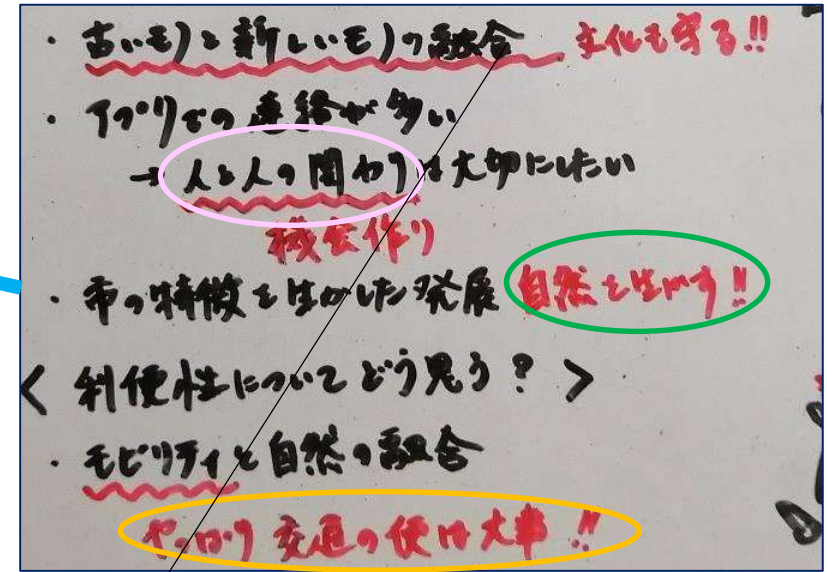 ・古いモノと新しいモノの融合 文化も守る!!
・アプリでの連絡が多い
→人と人の関わりは大切にしたい
機会作り
・市の特徴を生かした発展 自然を生かす!!
<利便性についてどう思う?>
・モビリティと自然の融合
やっぱり交通の便は大事!!